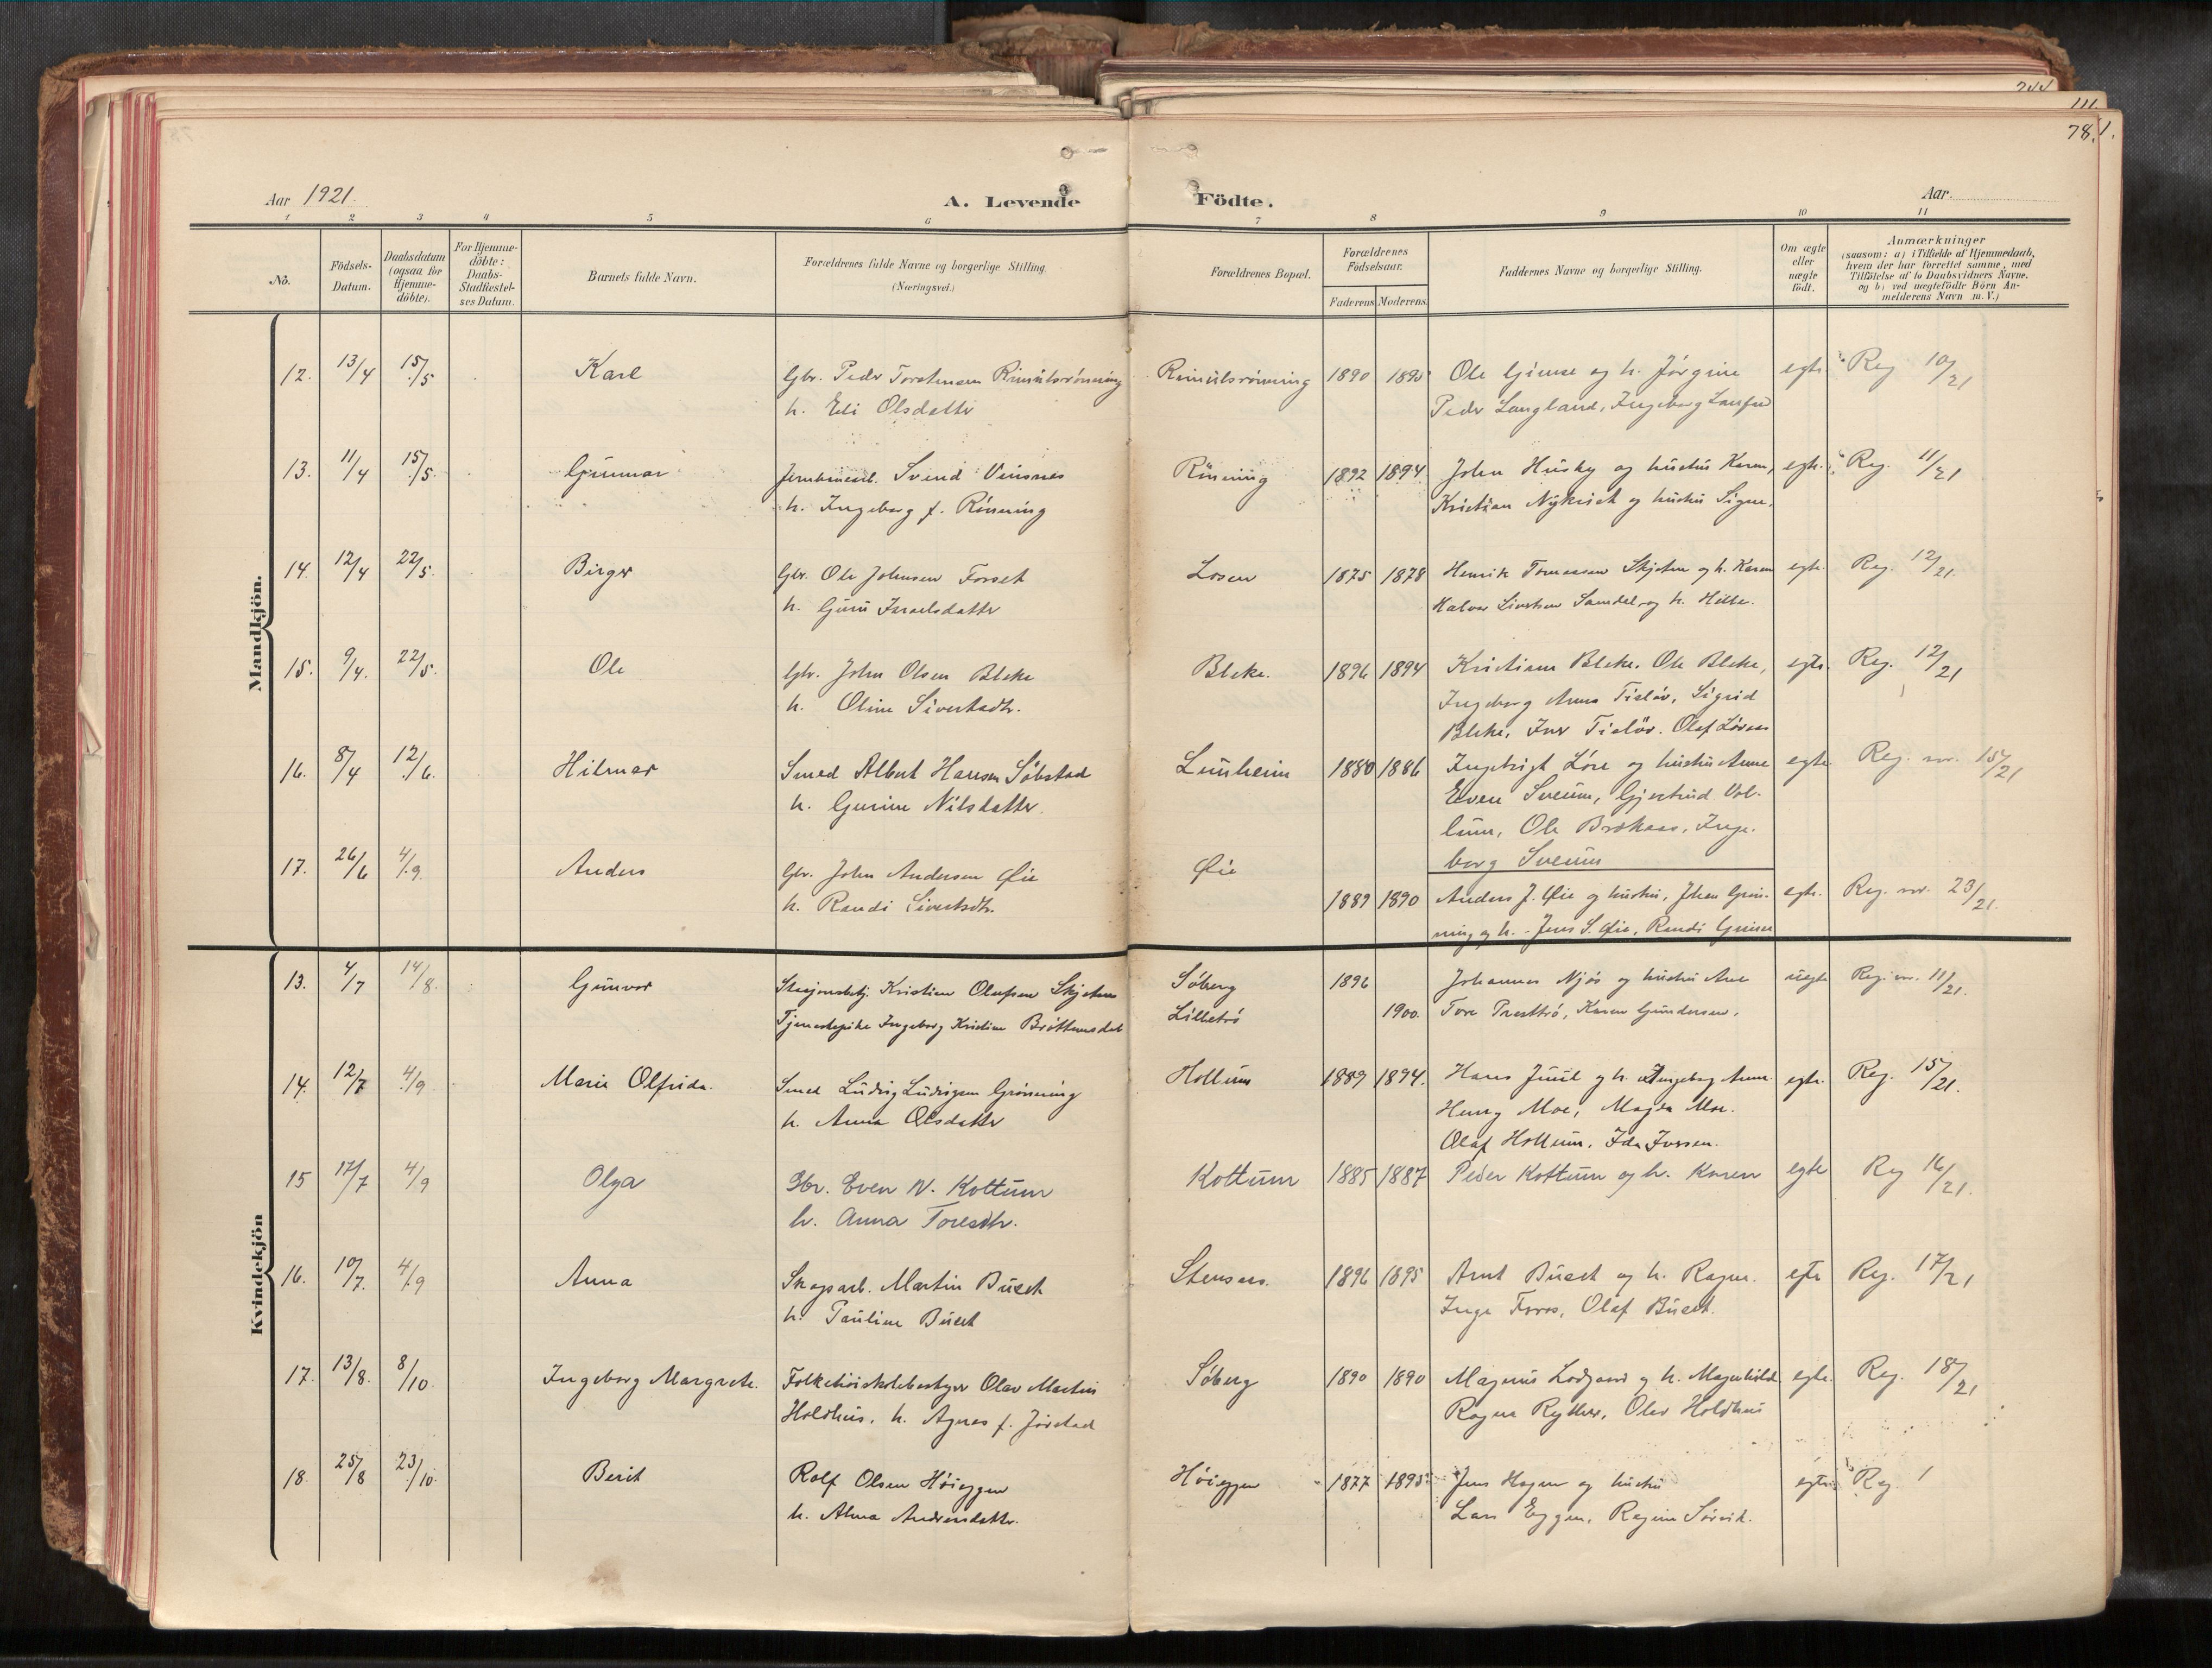 244
111.
78.
1.
Aar 1921.
A. Levende Födte.
Aar.
1 2 3 4 5 6 7 8 9 10 11
No.
Födsels-Datum.
Daabsdatum (ogsaa for Hjemme-döbte).
For Hjemme-döbte: Daabs-Stadfæstel-ses Datum.
Barnets fulde Navn.
Forældrenes fulde Navne og borgerlige Stilling.
(Næringsvei.)
Forældrenes Bopæl.
Forældrenes Födselsaar.
Faderens Moderens
Faddernes Navne og borgerlige Stilling.
Om ægte eller uægte födt.
Anmærkninger
(saasom: a) i Tilfælde af Hjemmedaab, hvem der har forrettet samme, med Tilföielse af to Daabsvidners Navne, og b) ved uægtefödte Börn An-melderens Navn m. V.)
Mandkjön.
12. 13/4 15/5 Karl Gbr. Peder Torstensen Rimulsrönning Rimulsrönning 1890 1895 Ole Gimse og h. Jörgine egte Reg 10/21
h. Eli Olsdatter Peder Langland, Ingeborg
13. 11/4 15/5. Gunnar Svend Vinsnes Rönning 1892 1894 John Husby og hustru Karen, egte. Reg. 11/21
h. Ingeborg f. Rönning Kristian og hustru Signe.
14. 12/4 22/5. Birger Gbr. Ole Johnsen Forset Losen 1875 1878 Henrik Skjetne og h. Karen egte. Reg. 12/21.
h. Guru Israelsdatter Halvor og h.
15. 9/4. 22/5. Ole Gbr. John Olsen Bleke Bleke. 1896 1894 Kristian Bleke. Ole Bleke, egte. Reg. 12/21
h. Oline Sivertsdtr. Ingeborg Anna Tislöv, Sigrid
Bleke, Tislöv. Olaf
16. 8/4 12/6. Hilmar Smed Albert Hansen Söbstad Lunheim 1880 1886 Ingebrigt Löre og hustru Anne egte Reg. nr. 15/21
h. Gurine Nilsdatter. Even Sveum, Gjertrud Vol-
lum, Ole Inge.
borg Sveum
17. 26/6 4/9. Anders Gbr. John Andersen Öie Öie 1889 1890 Anders J. Öie og hustru, Johan Grin- egte. Reg. nr. 23/21.
h. Randi Sivertsdtr. ning og h. - Jens S. Öie, Randi
Kvindekjön
13. 4/7 14/8. Gunvor Stasjonsbetj. Kristian Olufsen Skjetne Söberg 1896 Johannes Njös og hustru Ane uegte Reg. nr. 11/21.
Tjenestepike Ingeborg Kristine Lilletrö 1900. Tore Karen Gundersen.
14. 12/7 4/9. Marie Olfrida. Smed Ludvig Ludvigsen Grönning Hollum 1889 1894. Hans Juul og h. Ingeborg Anna. egte. Reg. 15/21.
h. Anna Olsdatter Henry Moe, Magda Moe.
Olaf Hollum. Ida Iversen.
15 17/7 4/9 Olga Gbr. Even N. Kottum Kottum 1885 1887 Peder Kottum og h. Karen egte Reg 16/21.
h. Anna Toresdtr.
16. 10/7. 4/9 Anna Skogsarb. Martin Buset 1896 1895 Arnt Buset og h. Ragna. egte Reg. 17/21
h. Pauline Buset Inga Foros, Olaf Buset.
17. 13/8. 8/10 Ingeborg Margrete. Folkehöiskolebestyrer Olav Martin Söberg 1890 1890 Magnus og h. Magnhild egte. Reg. 18/21
Holdhus, h. Agnes f. Jörstad Ragna Olav Holdhus
18. 25/8 23/10. Berit Rolf Olsen Höieggen Höieggen 1877 1895 Jens Hagen og hustru egte Reg /
h. Alma Andreasdatter. Lars Eggen, Regine Sörvik.